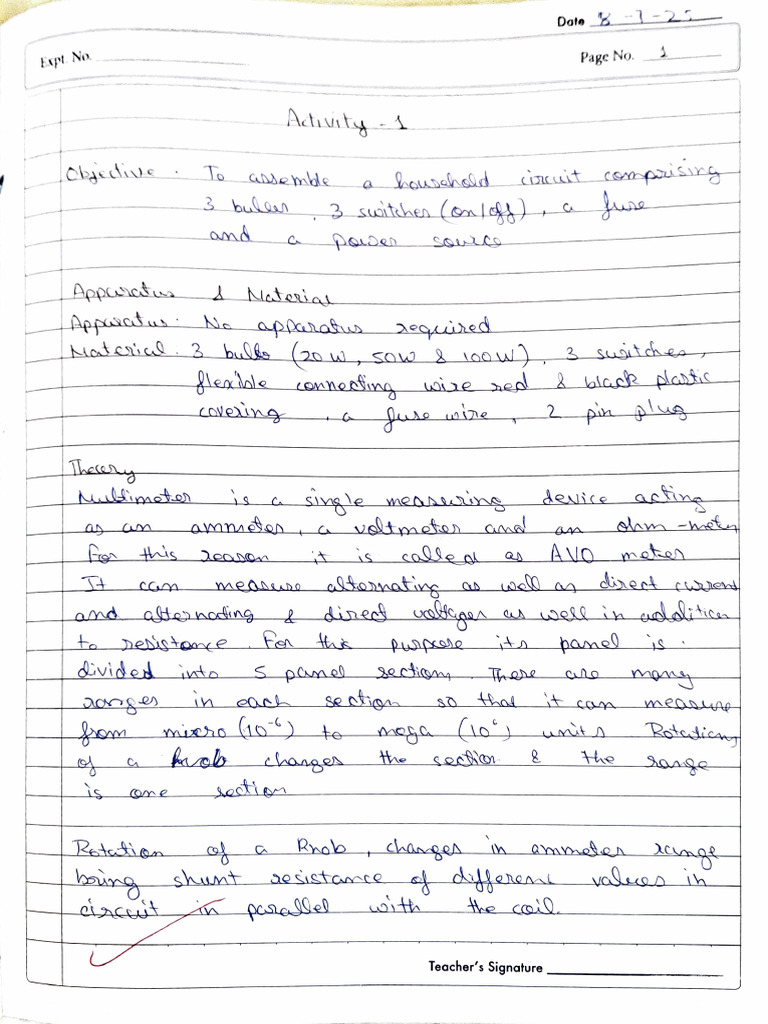 Date 8-7-25
Expt. No.
Page No. 1
Activity - 1
Objective. To assemble a household circuit comprising
3 bulbs, 3 switches (on/off), a fuse
and a power source
Apparatus & Material
Apparatus. No apparatus required
Material. 3 bulbs (20 W, 50W & 100W), 3 switches,
flexible connecting wire red & black plastic
covering, a fuse wire, 2 pin plug
Theory
Multimeter is a single measuring device acting
as an ammeter, a voltmeter and an ohm-meter
For this reason it is called as AVO meter
It can measure alternating as well as direct current
and alternating & direct voltages as well in addition
to resistance. For this purpose its panel is.
divided into 5 panel sections. There are many
ranges in each section so that it can measure
from micro (10⁻⁶) to mega (10⁶) units Rotation,
of a knob changes the section & the range
is one section
Rotation of a Knob, changes in ammeter range
bring shunt resistance of different values in
circuit in parallel with the coil.
Teacher's Signature